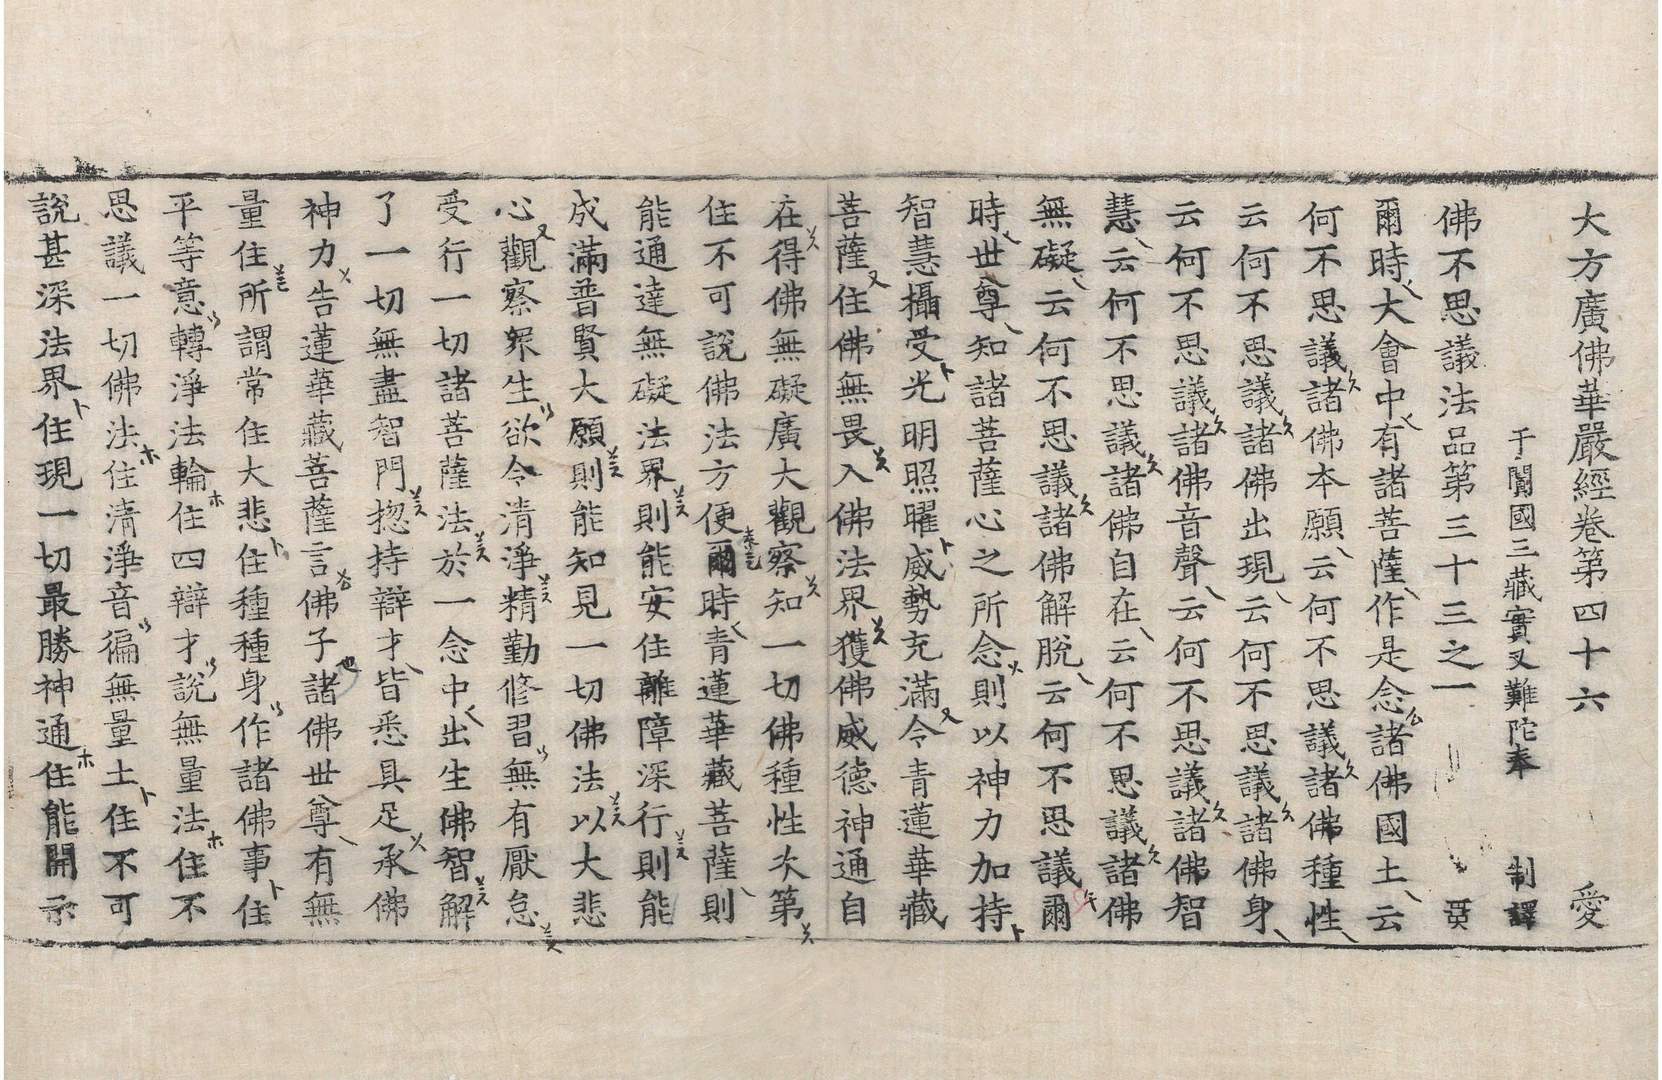 大方廣佛華嚴經卷第四十六 愛
于闐國三藏實叉難陀奉 制譯
佛不思議法品第三十三之一
爾時大會中有諸菩薩作是念諸佛國土云
何不思議諸佛本願云何不思議諸佛種性
云何不思議諸佛出現云何不思議諸佛身
云何不思議諸佛音聲云何不思議諸佛智
慧云何不思議諸佛自在云何不思議諸佛
無礙云何不思議諸佛解脫云何不思議爾
時世尊知諸菩薩心之所念則以神力加持
智慧攝受光明照曜威勢充滿令青蓮華藏
菩薩住佛無畏入佛法界獲佛威德神通自
在得佛無礙廣大觀察知一切佛種性次第
住不可說佛法方便爾時青蓮華藏菩薩則
能通達無礙法界則能安住離障深行則能
成滿普賢大願則能知見一切佛法以大悲
心觀察眾生欲令清淨精勤修習無有厭怠
受行一切諸菩薩法於一念中出生佛智解
了一切無盡智門揔持辯才皆悉具足承佛
神力告蓮華藏菩薩言佛子諸佛世尊有無
量住所謂常住大悲住種種身作諸佛事住
平等意轉淨法輪住四辯才說無量法住不
思議一切佛法住清淨音徧無量土住不可
說甚深法界住現一切最勝神通住能開示